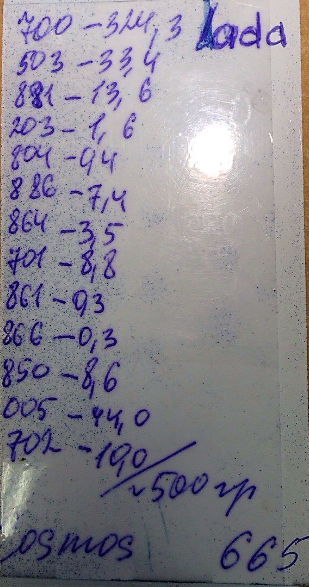 700 - 324,3 Lada
503 - 33,4
881 - 13,6
203 - 1,6
804 - 94
886 - 7,4
864 - 3,5
701 - 8,8
861 - 93
866 - 0,3
850 - 8,6
005 - 44,0
702 - 19,0
~500 гр
Cosmos 665